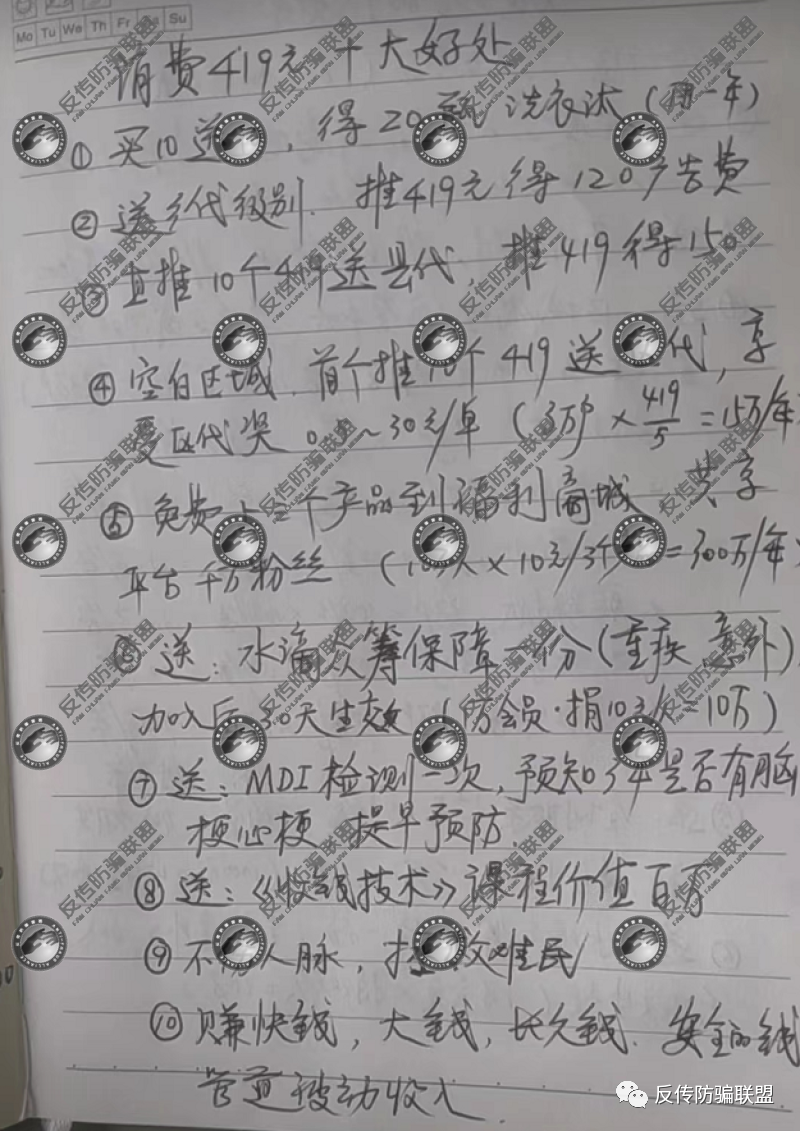 Mo Tu We Th Fr Su
消费419元 十大好处
① 买10送 , 得20瓶洗衣液 (用一年)
② 送乡代级别. 推419元得120广告费
③ 直推10个419送县代, 推419得150
④ 空白区域, 首个推10个419送区代, 享
受区代奖 ~30元/单 (3万户×419/5=15万/年
⑤ 免费 个产品到福利商城 共享
平台千万粉丝 ( ×10元/ =300万/年
⑥ 送: 水滴众筹保障一份(重疾 意外)
加入后30天生效 ( 会员·捐10元/ =10万)
⑦ 送: MDI检测一次, 预知 年是否有脑
梗心梗 提早预防
⑧ 送:《收钱技术》课程价值百万
⑨ 不 人脉, 难民
⑩ 赚快钱, 大钱, 长久钱. 安全的钱
管道被动收入
反传防骗联盟
FAN CHUAN FANG PIAN LIAN MENG
反传防骗联盟